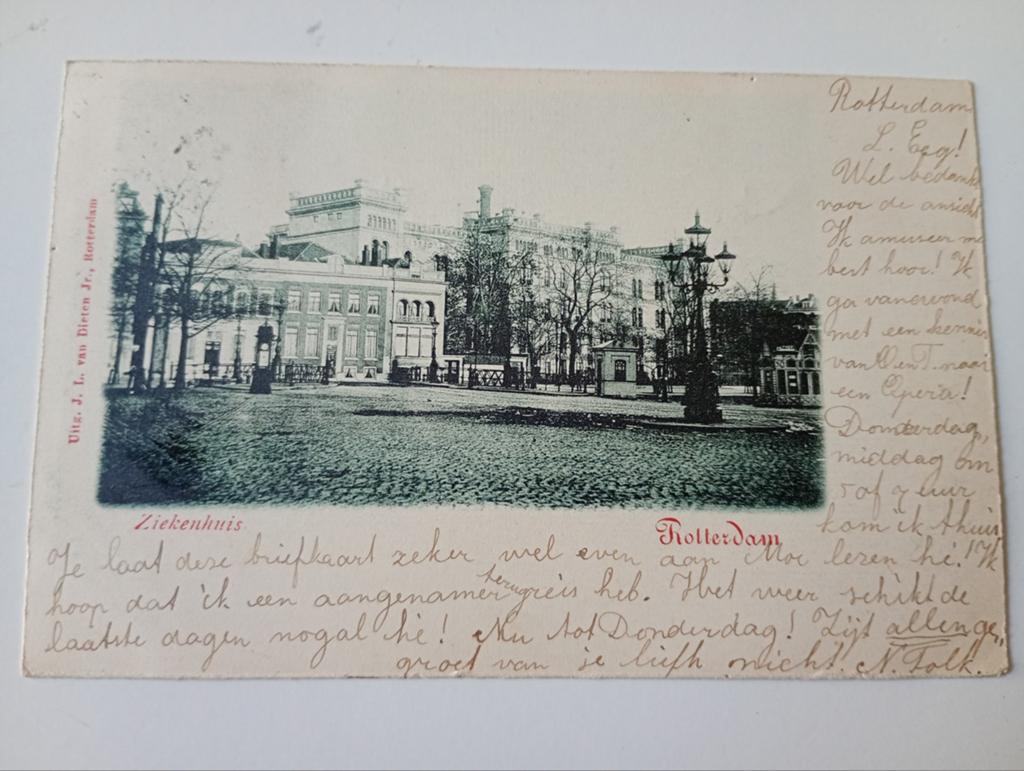 Uitg. J. L. van Dieten Jr., Rotterdam
Ziekenhuis.
Rotterdam
Rotterdam
L. Eeg!
Wel bedankt
voor de ansicht
Ik amuseer me
best hoor! Ik
ga vanavond
met een kennis
van O en T. naar
een Opera!
Donderdag,
middag om
5 of 7 uur
kom ik thuis
Je laat deze briefkaart zeker wel even aan Moe lezen hé! Ik
hoop dat ik een aangenamer terugreis heb. Het weer schikt de
laatste dagen nogal hé! Nu tot Donderdag! Zijt allen ge„
groet van je liefh nicht. N. Tolk.